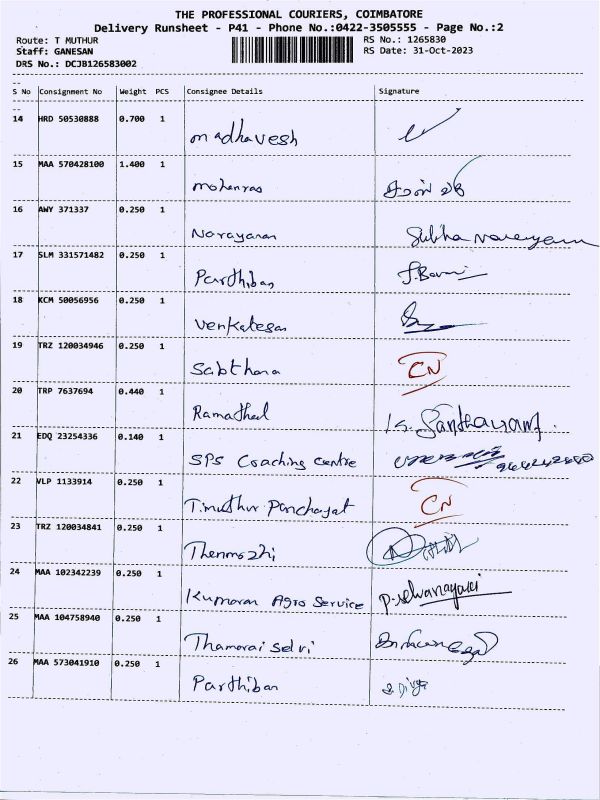 THE PROFESSIONAL COURIERS, COIMBATORE
Delivery Runsheet - P41 - Phone No.:0422-3505555 - Page No.:2
Route: T MUTHUR RS No.: 1265830
Staff: GANESAN RS Date: 31-Oct-2023
DRS No.: DCJB126583002
S No Consignment No Weight PCS Consignee Details Signature
14 HRD 50530888 0.700 1 madhavesh
15 MAA 570428100 1.400 1 mohanras
16 AWY 371337 0.250 1 Narayanan Subha Narayanan
17 SLM 331571482 0.250 1 Parthiban
18 KCM 50056956 0.250 1 Venkatesan
19 TRZ 120034946 0.250 1 Sabthana CN
20 TRP 7637694 0.440 1
21 EDQ 23254336 0.140 1 SPS Coaching Centre
22 VLP 1133914 0.250 1 T.muthur Panchayat CN
23 TRZ 120034841 0.250 1 Thenmozhi
24 MAA 102342239 0.250 1 Kumaran Agro Service P.Selvanayaki
25 MAA 104758940 0.250 1 Thamarai selvi
26 MAA 573041910 0.250 1 Parthiban